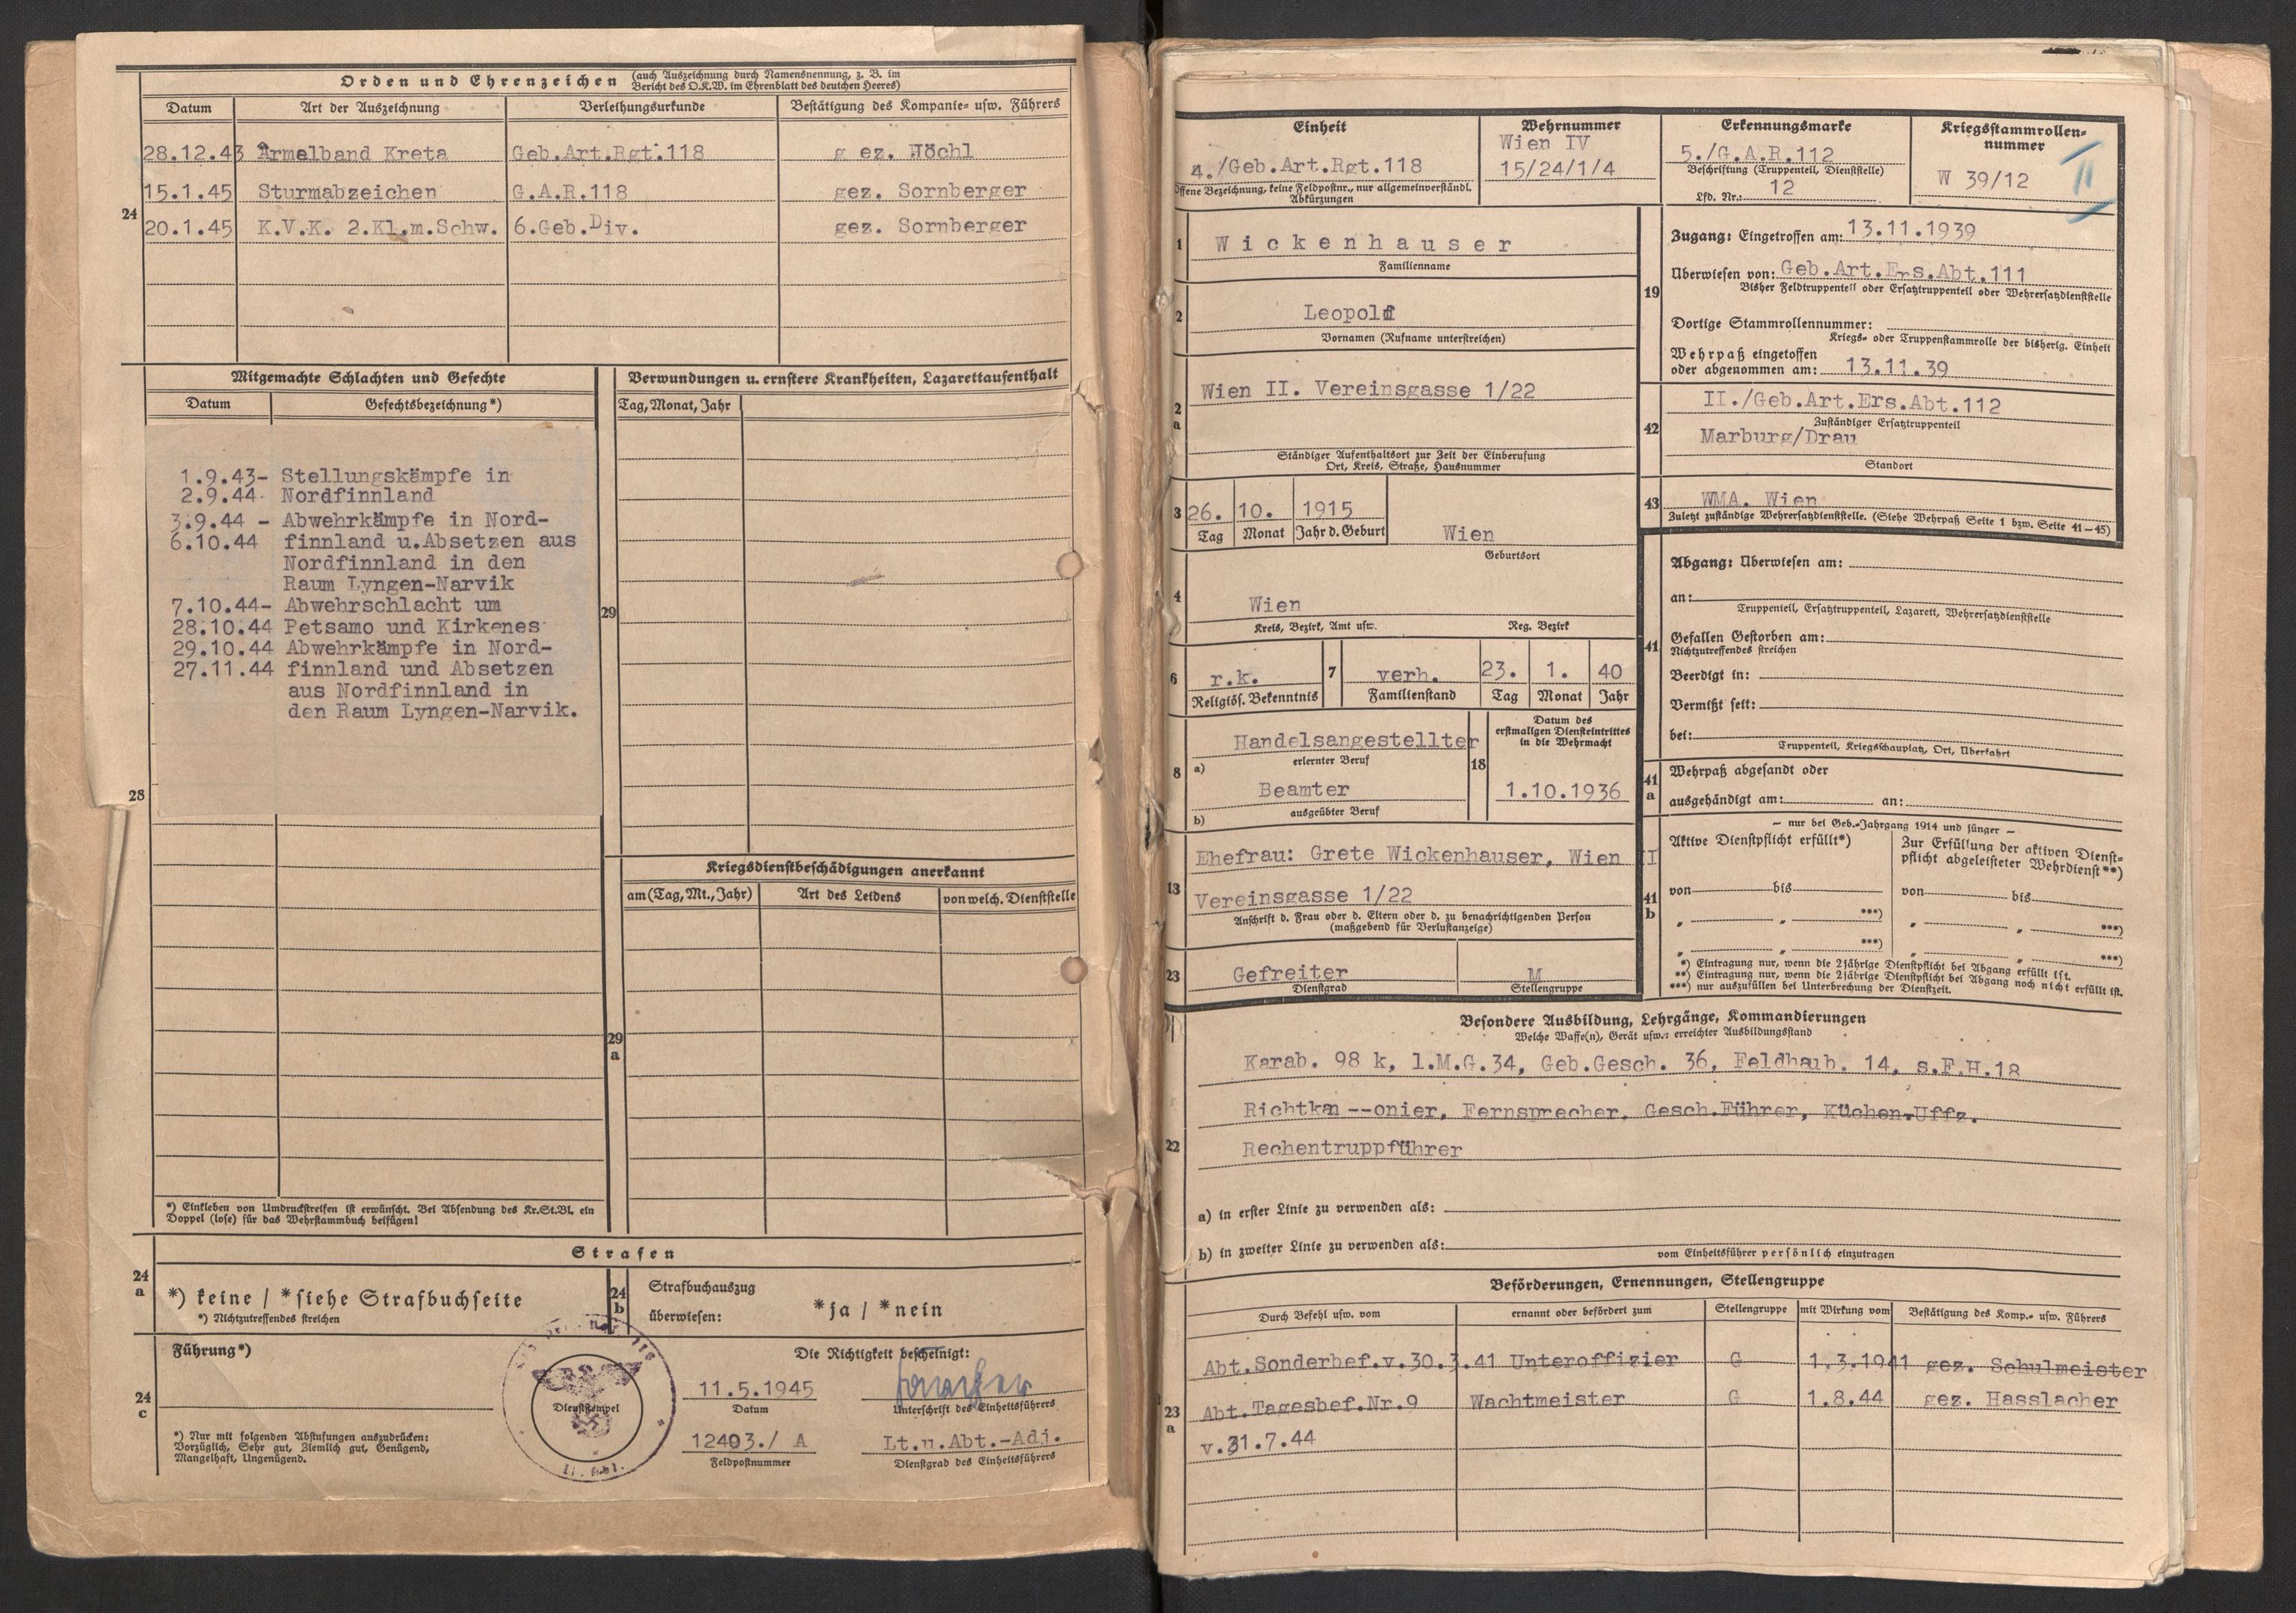 Orden und Ehrenzeichen (auch Auszeichnung durch Namensnennung, z. B. im
Bericht des O.K.W. im Ehrenblatt des deutschen Heeres)
Datum Art der Auszeichnung Verleihungsurkunde Bestätigung des Kompanie- usw. Führers
28.12.43 Ärmelband Kreta Geb.Art.Rgt.118 g ez. Höchl
15.1.45 Sturmabzeichen G.A.R.118 gez. Sornberger
24
20.1.45 K.V.K. 2.Kl.m.Schw. 6.Geb.Div. gez. Sornberger
Mitgemachte Schlachten und Gefechte
Datum Gefechtsbezeichnung*)
1.9.43- Stellungskämpfe in
2.9.44- Nordfinnland
3.9.44 - Abwehrkämpfe in Nord-
6.10.44 finnland u.Absetzen aus
Nordfinnland in den
Raum Lyngen-Narvik
7.10.44- Abwehrschlacht um
28.10.44 Petsamo und Kirkenes
29.10.44 Abwehrkämpfe in Nord-
27.11.44 finnland und Absetzen
aus Nordfinnland in
den Raum Lyngen-Narvik.
28
*) Einkleben von Umdruckstreifen ist erwünscht. Bei Absendung des Kr.St.Bl. ein
Doppel (lose) für das Wehrstammbuch beifügen!
Verwundungen u. ernstere Krankheiten, Lazarettaufenthalt
Tag, Monat, Jahr
29
Kriegsdienstbeschädigungen anerkannt
am (Tag, Mt., Jahr) Art des Leidens von welch. Dienststelle
29
a
Strafen
24
a
*) keine / *siehe Strafbuchseite
*) Nichtzutreffendes streichen
24
b
Strafbuchauszug
überwiesen: *ja / *nein
Führung*)
24
c
*) Nur mit folgenden Abstufungen auszudrücken:
Vorzüglich, Sehr gut, Ziemlich gut, Genügend,
Mangelhaft, Ungenügend.
Dienststempel
Die Richtigkeit bescheinigt:
11.5.1945
Datum Unterschrift des Einheitsführers
12403./ A Lt.u.Abt.-Adj.
Feldpostnummer Dienstgrad des Einheitsführers
Einheit Wehrnummer Erkennungsmarke Kriegsstammrollen-
nummer
4./Geb.Art.Rgt.118
Offene Bezeichnung, keine Feldpostnr., nur allgemeinverständl.
Abkürzungen
Wien IV
15/24/1/4
5./G.A.R.112
Beschriftung (Truppenteil, Dienststelle)
Lfd. Nr.: 12
W 39/12
II
1 Wickenhauser
Familienname
2 Leopold
Vornamen (Rufname unterstreichen)
2
a
Wien II. Vereinsgasse 1/22
Ständiger Aufenthaltsort zur Zeit der Einberufung
Ort, Kreis, Straße, Hausnummer
3 26. 10. 1915 Wien
Tag Monat Jahr d. Geburt Geburtsort
4 Wien
Kreis, Bezirk, Amt usw. Reg. Bezirk
6 r.k. 7 verh. 23. 1. 40
Religiös. Bekenntnis Familienstand Tag Monat Jahr
8 a) Handelsangestellter
erlernter Beruf
b) Beamter
ausgeübter Beruf
18 Datum des
erstmaligen Diensteintrittes
in die Wehrmacht
1.10.1936
13 Ehefrau: Grete Wickenhauser, Wien II
Vereinsgasse 1/22
Anschrift d. Frau oder d. Eltern oder d. zu benachrichtigenden Person
(maßgebend für Verlustanzeige)
23 Gefreiter M
Dienstgrad Stellengruppe
19
Zugang: Eingetroffen am: 13.11.1939
Überwiesen von: Geb.Art.Ers.Abt.111
Bisher Feldtruppenteil oder Ersatztruppenteil oder Wehrersatzdienststelle
Dortige Stammrollennummer:
Kriegs- oder Truppenstammrolle der bisherig. Einheit
Wehrpaß eingetoffen
oder abgenommen am: 13.11.39
42 II./Geb.Art.Ers.Abt.112
Zuständiger Ersatztruppenteil
Marburg/Drau
Standort
43 WMA. Wien
Zuletzt zuständige Wehrersatzdienststelle. (Siehe Wehrpaß Seite 1 bzw. Seite 41-45)
41
Abgang: Überwiesen am:
an:
Truppenteil, Ersatztruppenteil, Lazarett, Wehrersatzdienststelle
Gefallen Gestorben am:
Nichtzutreffendes streichen
Beerdigt in:
Vermißt seit:
bei:
Truppenteil, Kriegsschauplatz, Ort, Überfahrt
41
a
Wehrpaß abgesandt oder
ausgehändigt am: an:
41
b
— nur bei Geb.-Jahrgang 1914 und jünger —
Aktive Dienstpflicht erfüllt*) Zur Erfüllung der aktiven Dienst-
pflicht abgeleisteter Wehrdienst**)
von bis von bis
„ „ ***) „ „ ***)
„ „ ***) „ „ ***)
*) Eintragung nur, wenn die 2jährige Dienstpflicht bei Abgang erfüllt ist.
**) Eintragung nur, wenn die 2jährige Dienstpflicht bei Abgang noch nicht erfüllt ist.
***) nur auszufüllen bei Unterbrechung der Dienstzeit.
Besondere Ausbildung, Lehrgänge, Kommandierungen
Welche Waffe(n), Gerät usw.: erreichter Ausbildungsstand
Karab. 98 k, l.M.G.34, Geb.Gesch. 36, Feldhaub. 14, s.F.H.18
Richtkan --onier, Fernsprecher, Gesch.Führer, Küchen.Uffz.
22 Rechentruppführer
a) in erster Linie zu verwenden als:
b) in zweiter Linie zu verwenden als:
vom Einheitsführer persönlich einzutragen
Beförderungen, Ernennungen, Stellengruppe
Durch Befehl usw. vom ernannt oder befördert zum Stellengruppe mit Wirkung vom Bestätigung des Komp.- usw. Führers
Abt.Sonderbef.v.30.3.41 Unteroffizier G 1.3.1941 gez. Schulmeister
23
a
Abt.Tagesbef.Nr.9 Wachtmeister G 1.8.44 gez. Hasslacher
v.31.7.44